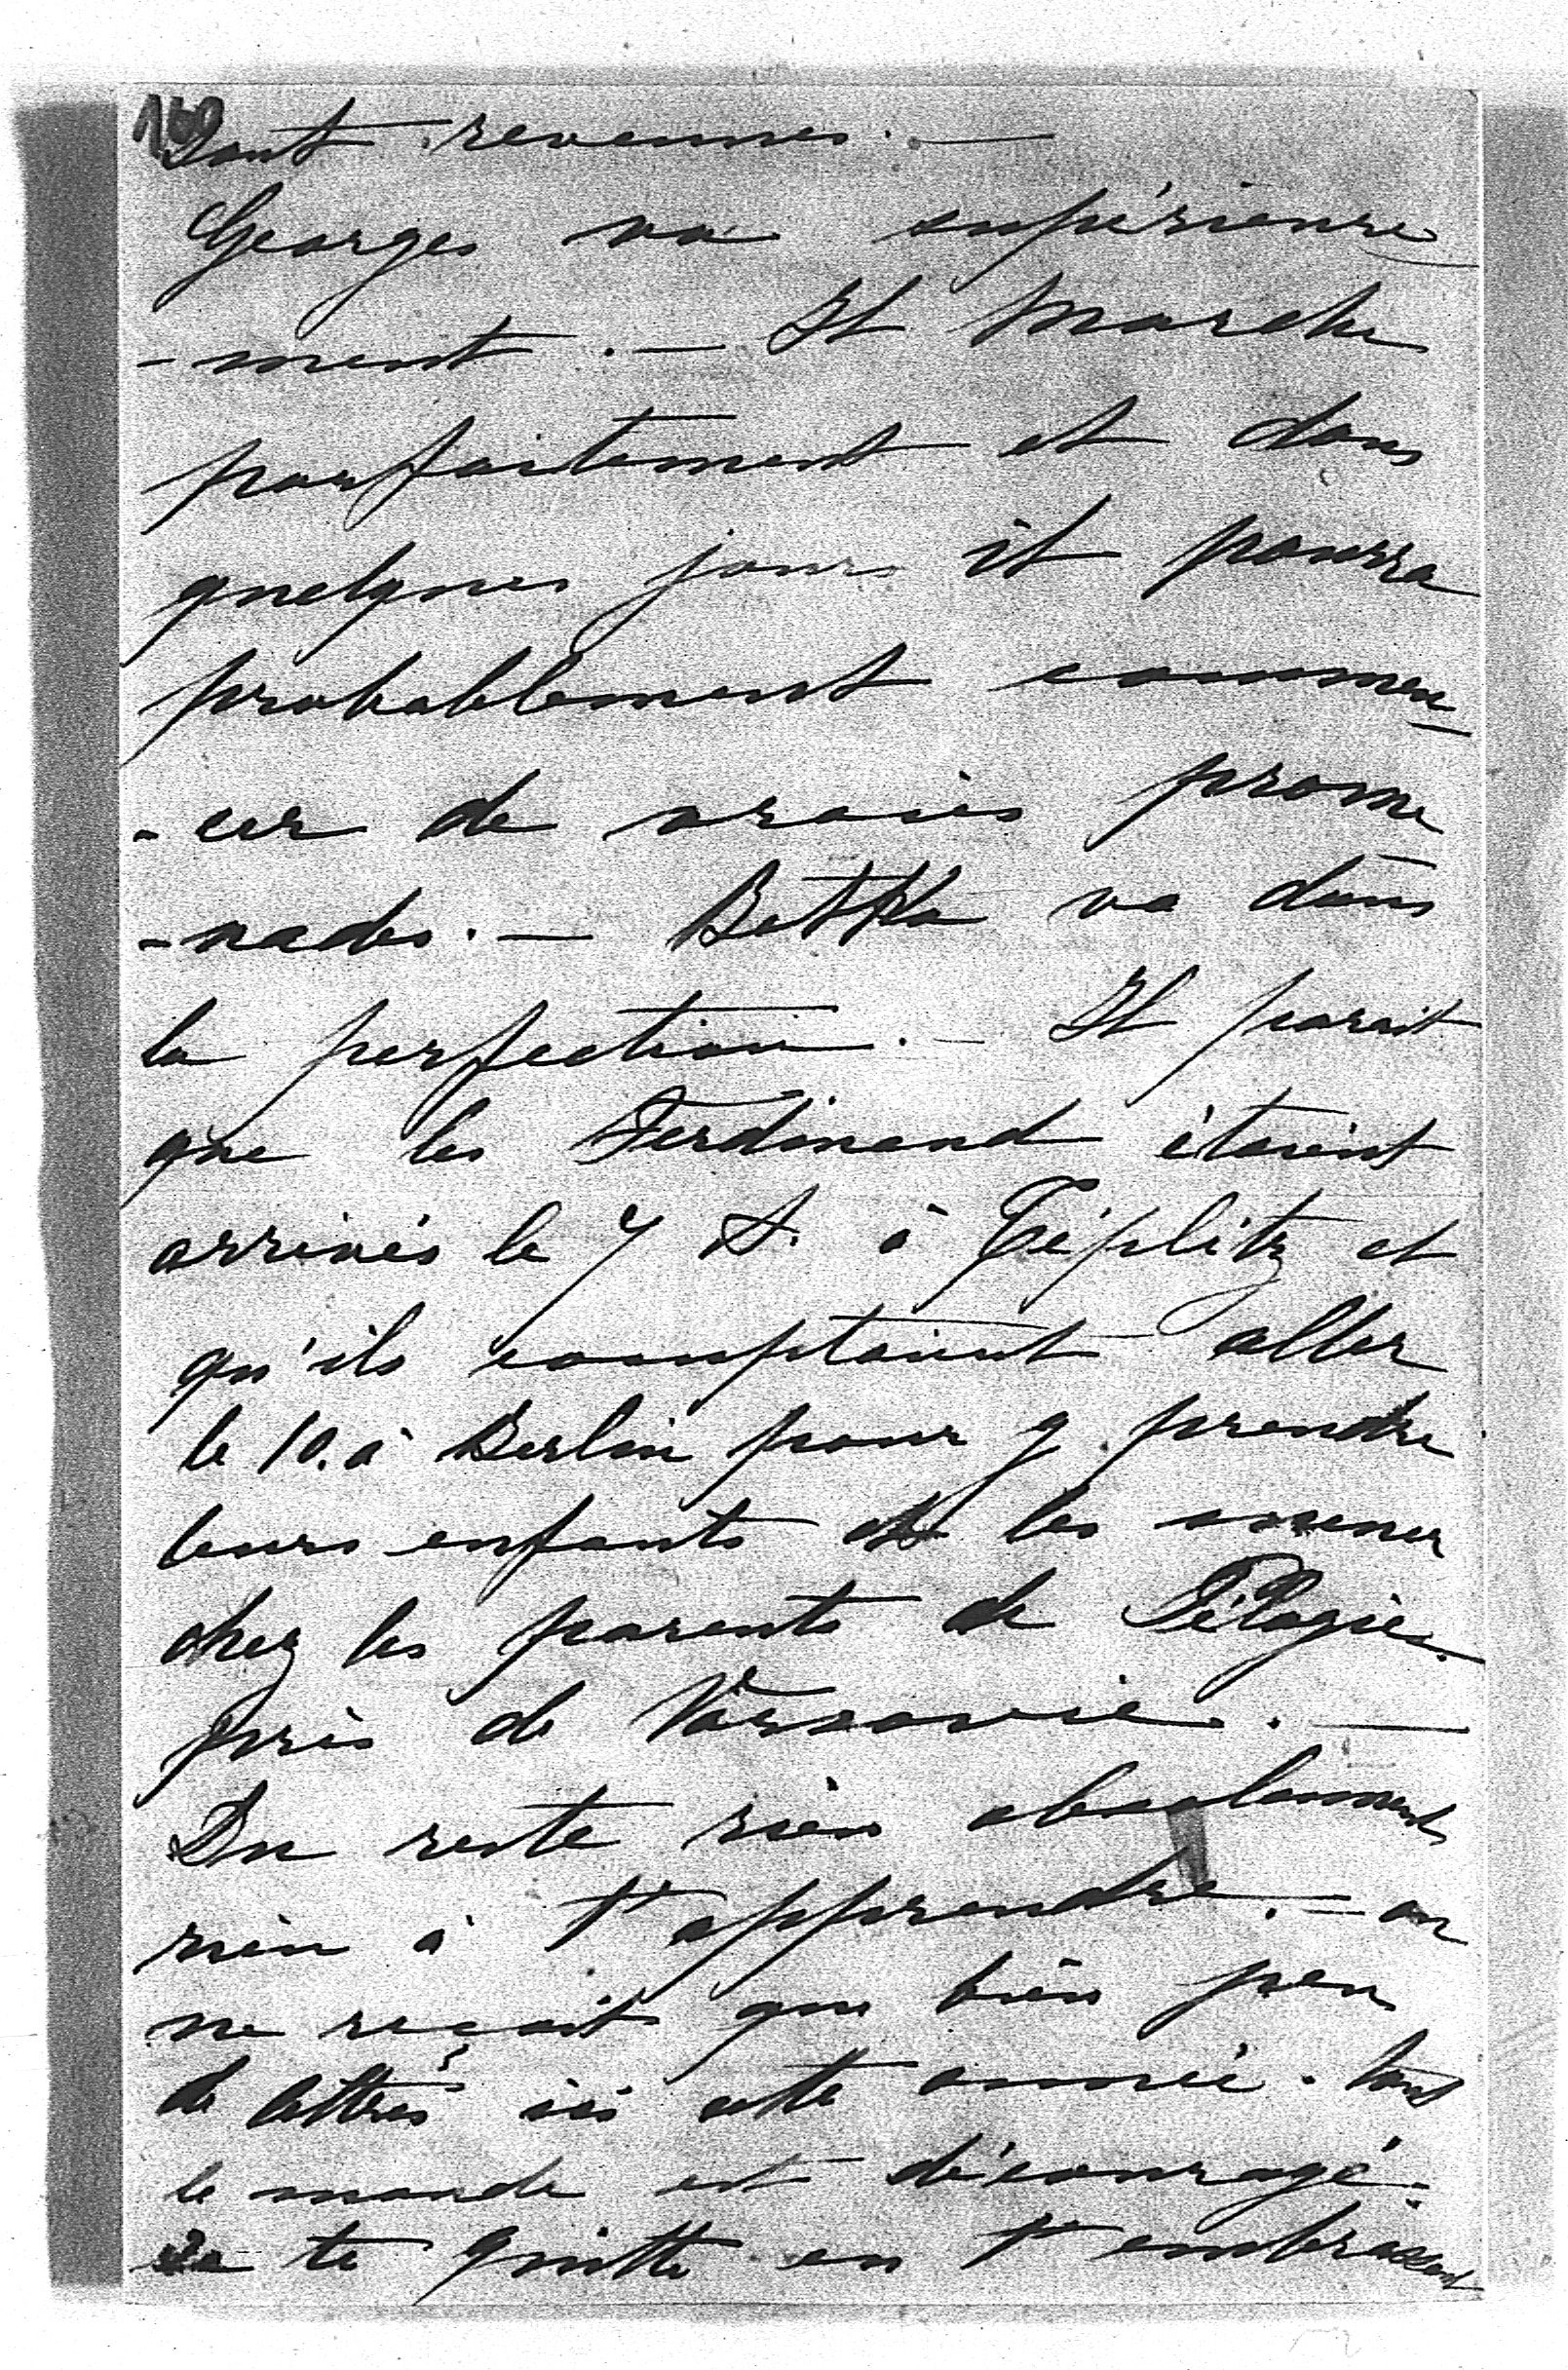 160
sont revenues. —
Georges va supérieure
-ment. — Il marche
parfaitement et dans
quelques jours il pourra
probablement commen-
-cer de vraies prome
-nades. — Betka va dans
la perfection. — Il parait
que les Ferdinand étaient
arrivés le 7 à Téplitz et
qu'ils comptaient aller
le 10. à Berlin pour y prendre
leurs enfants et les mener
chez les parents de Pélagie
près de Varsovie. —
Du reste rien absolument
rien à t'apprendre. — on
ne reçoit que bien peu
de lettres ici cette année. tout
le monde est découragé.
Je te quitte en t'embrassant